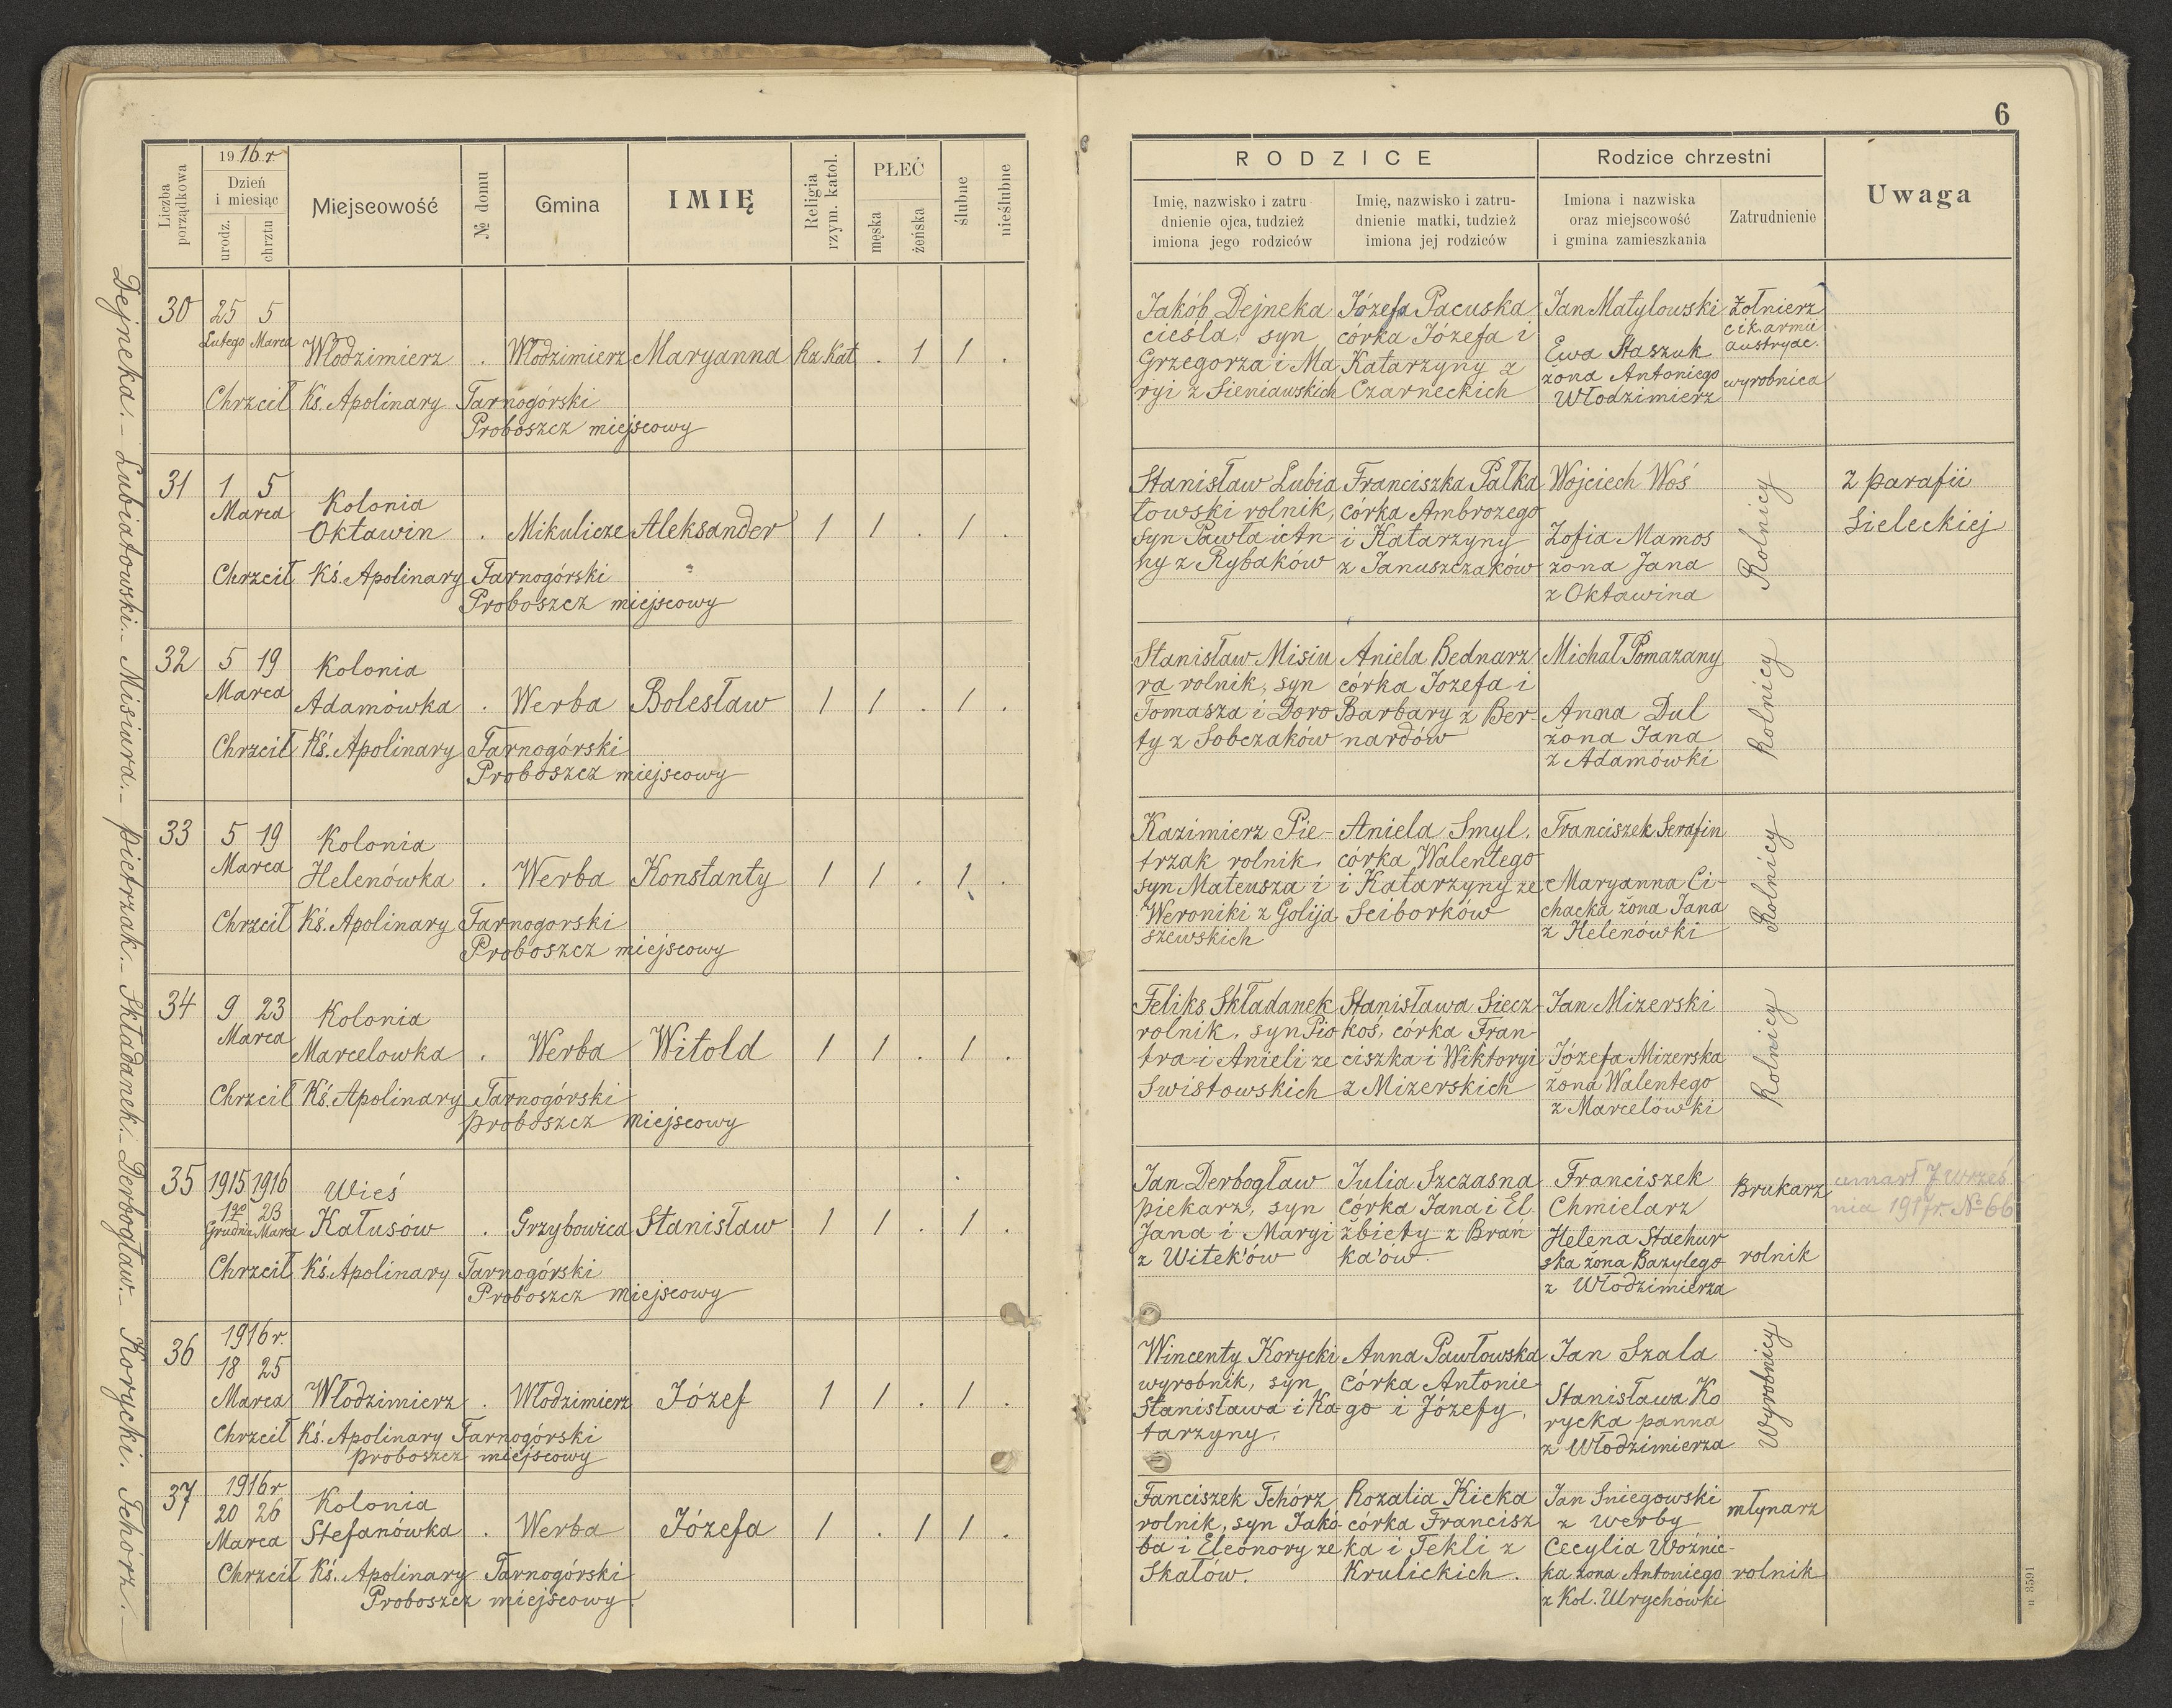 6
19 16 r.
Liczba porządkowa
Dzień i miesiąc
urodz.
chrztu
Miejscowość
№ domu
Gmina
IMIĘ
Religia rzym. katol.
PŁEĆ
męska
żeńska
ślubne
nieślubne
RODZICE
Imię, nazwisko i zatrudnienie ojca, tudzież imiona jego rodziców
Imię, nazwisko i zatrudnienie matki, tudzież imiona jej rodziców
Rodzice chrzestni
Imiona i nazwiska oraz miejscowość i gmina zamieszkania
Zatrudnienie
Uwaga
Dejneka. – Lubiatowski. – Misiura. – Pietrzak. – Składanek. – Derbogław. – Korycki. Tchórz. –
30 25 5
Lutego Marca Włodzimierz . Włodzimierz Maryanna Rz Kat . 1 1 .
Chrzcił Kś. Apolinary Tarnogórski
Proboszcz miejscowy
Jakób Dejneka
cieśla, syn
Grzegorza i Ma
ryi z Sieniawskich
Józefa Pacuska
córka Józefa i
Katarzyny z
Czarneckich
Jan Matylowski
Ewa Staszuk
żona Antoniego
Włodzimierz
Żołnierz
c i k. armii
austryac.
wyrobnica
31 1 5
Marca Kolonia
Oktawin . Mikulicze Aleksander 1 1 . 1 .
Chrzcił Kś. Apolinary Tarnogórski
Proboszcz miejscowy
Stanisław Lubia
towski rolnik,
syn Pawła i An
ny z Rybaków
Franciszka Pałka
córka Ambrożego
i Katarzyny
z Januszczaków
Wojciech Woś
Zofia Mamos
żona Jana
z Oktawina
Rolnicy
z parafii
Sieleckiej
32 5 19
Marca Kolonia
Adamówka . Werba Bolesław 1 1 . 1 .
Chrzcił Kś. Apolinary Tarnogórski
Proboszcz miejscowy
Stanisław Misiu
ra rolnik, syn
Tomasza i Doro
ty z Sobczaków
Aniela Bednarz
córka Józefa i
Barbary z Ber-
nardów
Michał Pomazany
Anna Dul
żona Jana
z Adamówki
Rolnicy
33 5 19
Marca Kolonia
Helenówka . Werba Konstanty 1 1 . 1 .
Chrzcił Kś. Apolinary Tarnogorski
Proboszcz miejscowy
Kazimierz Pie-
trzak rolnik,
syn Mateusza i
Weroniki z Golija
szewskich
Aniela Smyl.
córka Walentego
i Katarzyny ze
Sciborków
Franciszek Serafin
Maryanna Ci-
chacka żona Jana
z Helenówki
Rolnicy
34 9 23
Marca Kolonia
Marcelowka . Werba Witold 1 1 . 1 .
Chrzcił Kś. Apolinary Tarnogórski
proboszcz miejscowy
Feliks Składanek
rolnik, syn Pio
tra i Anieli ze
Swistowskich
Stanisława Siecz-
koś, córka Fran-
ciszka i Wiktoryi
z Mizerskich
Jan Mizerski
Józefa Mizerska
żona Walentego
z Marcelówki
Rolnicy
35 1915 1916
19go 23
Grudnia Marca
Wieś
Kałusów . Grzybowica Stanisław 1 1 . 1 .
Chrzcił Kś. Apolinary Tarnogórski
Proboszcz miejscowy
Jan Derbogław
piekarz, syn
Jana i Maryi
z Witek'ów
Julia Szczasna
córka Jana i El-
żbiety z Brań
ka'ów
Franciszek
Chmielarz
Helena Stachur
ska żona Bazylego
z Włodzimierza
Brukarz
rolnik
umarł 7 wrześ
nia 1917 r. № 66
36 1916 r.
18 25
Marca Włodzimierz . Włodzimierz Józef 1 1 . 1 .
Chrzcił Kś. Apolinary Tarnogórski
proboszcz miejscowy
Wincenty Korycki
wyrobnik, syn
Stanisława i Ka-
tarzyny.
Anna Pawłowska
córka Antonie-
go i Józefy,
Jan Szala
Stanisława Ko
rycka panna
z Włodzimierza
Wyrobnicy
37 1916 r
20 26
Marca Kolonia
Stefanówka . Werba Józefa 1 . 1 1 .
Chrzcił Kś. Apolinary Tarnogórski
Proboszcz miejscowy.
Fanciszek Tchórz
rolnik, syn Jakó-
ba i Eleonory ze
Skałów.
Rozalia Kicka
córka Francisz
ka i Tekli z
Krulickich.
Jan Sniegowski
z Werby
Cecylia Woźnic-
ka żona Antoniego
z Kol. Ulrychówki
młynarz
rolnik
n 3591